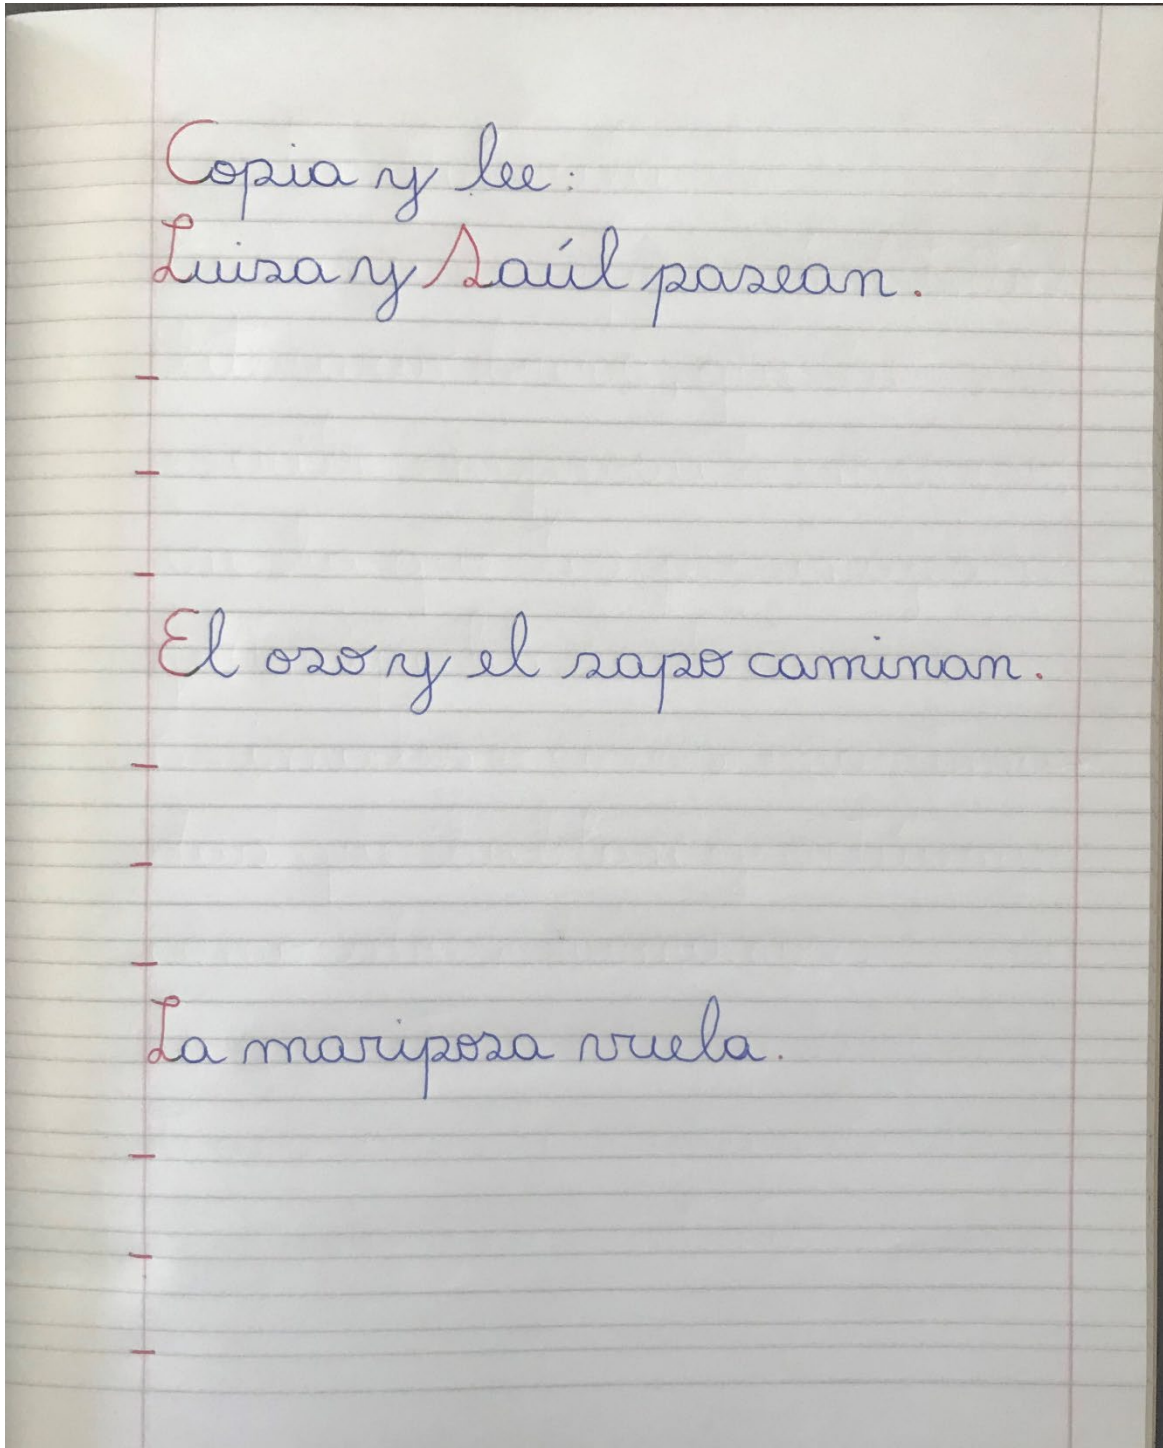 Copia y lee:
Luisa y Saúl pasean.
El oso y el sapo caminan.
La mariposa vuela.